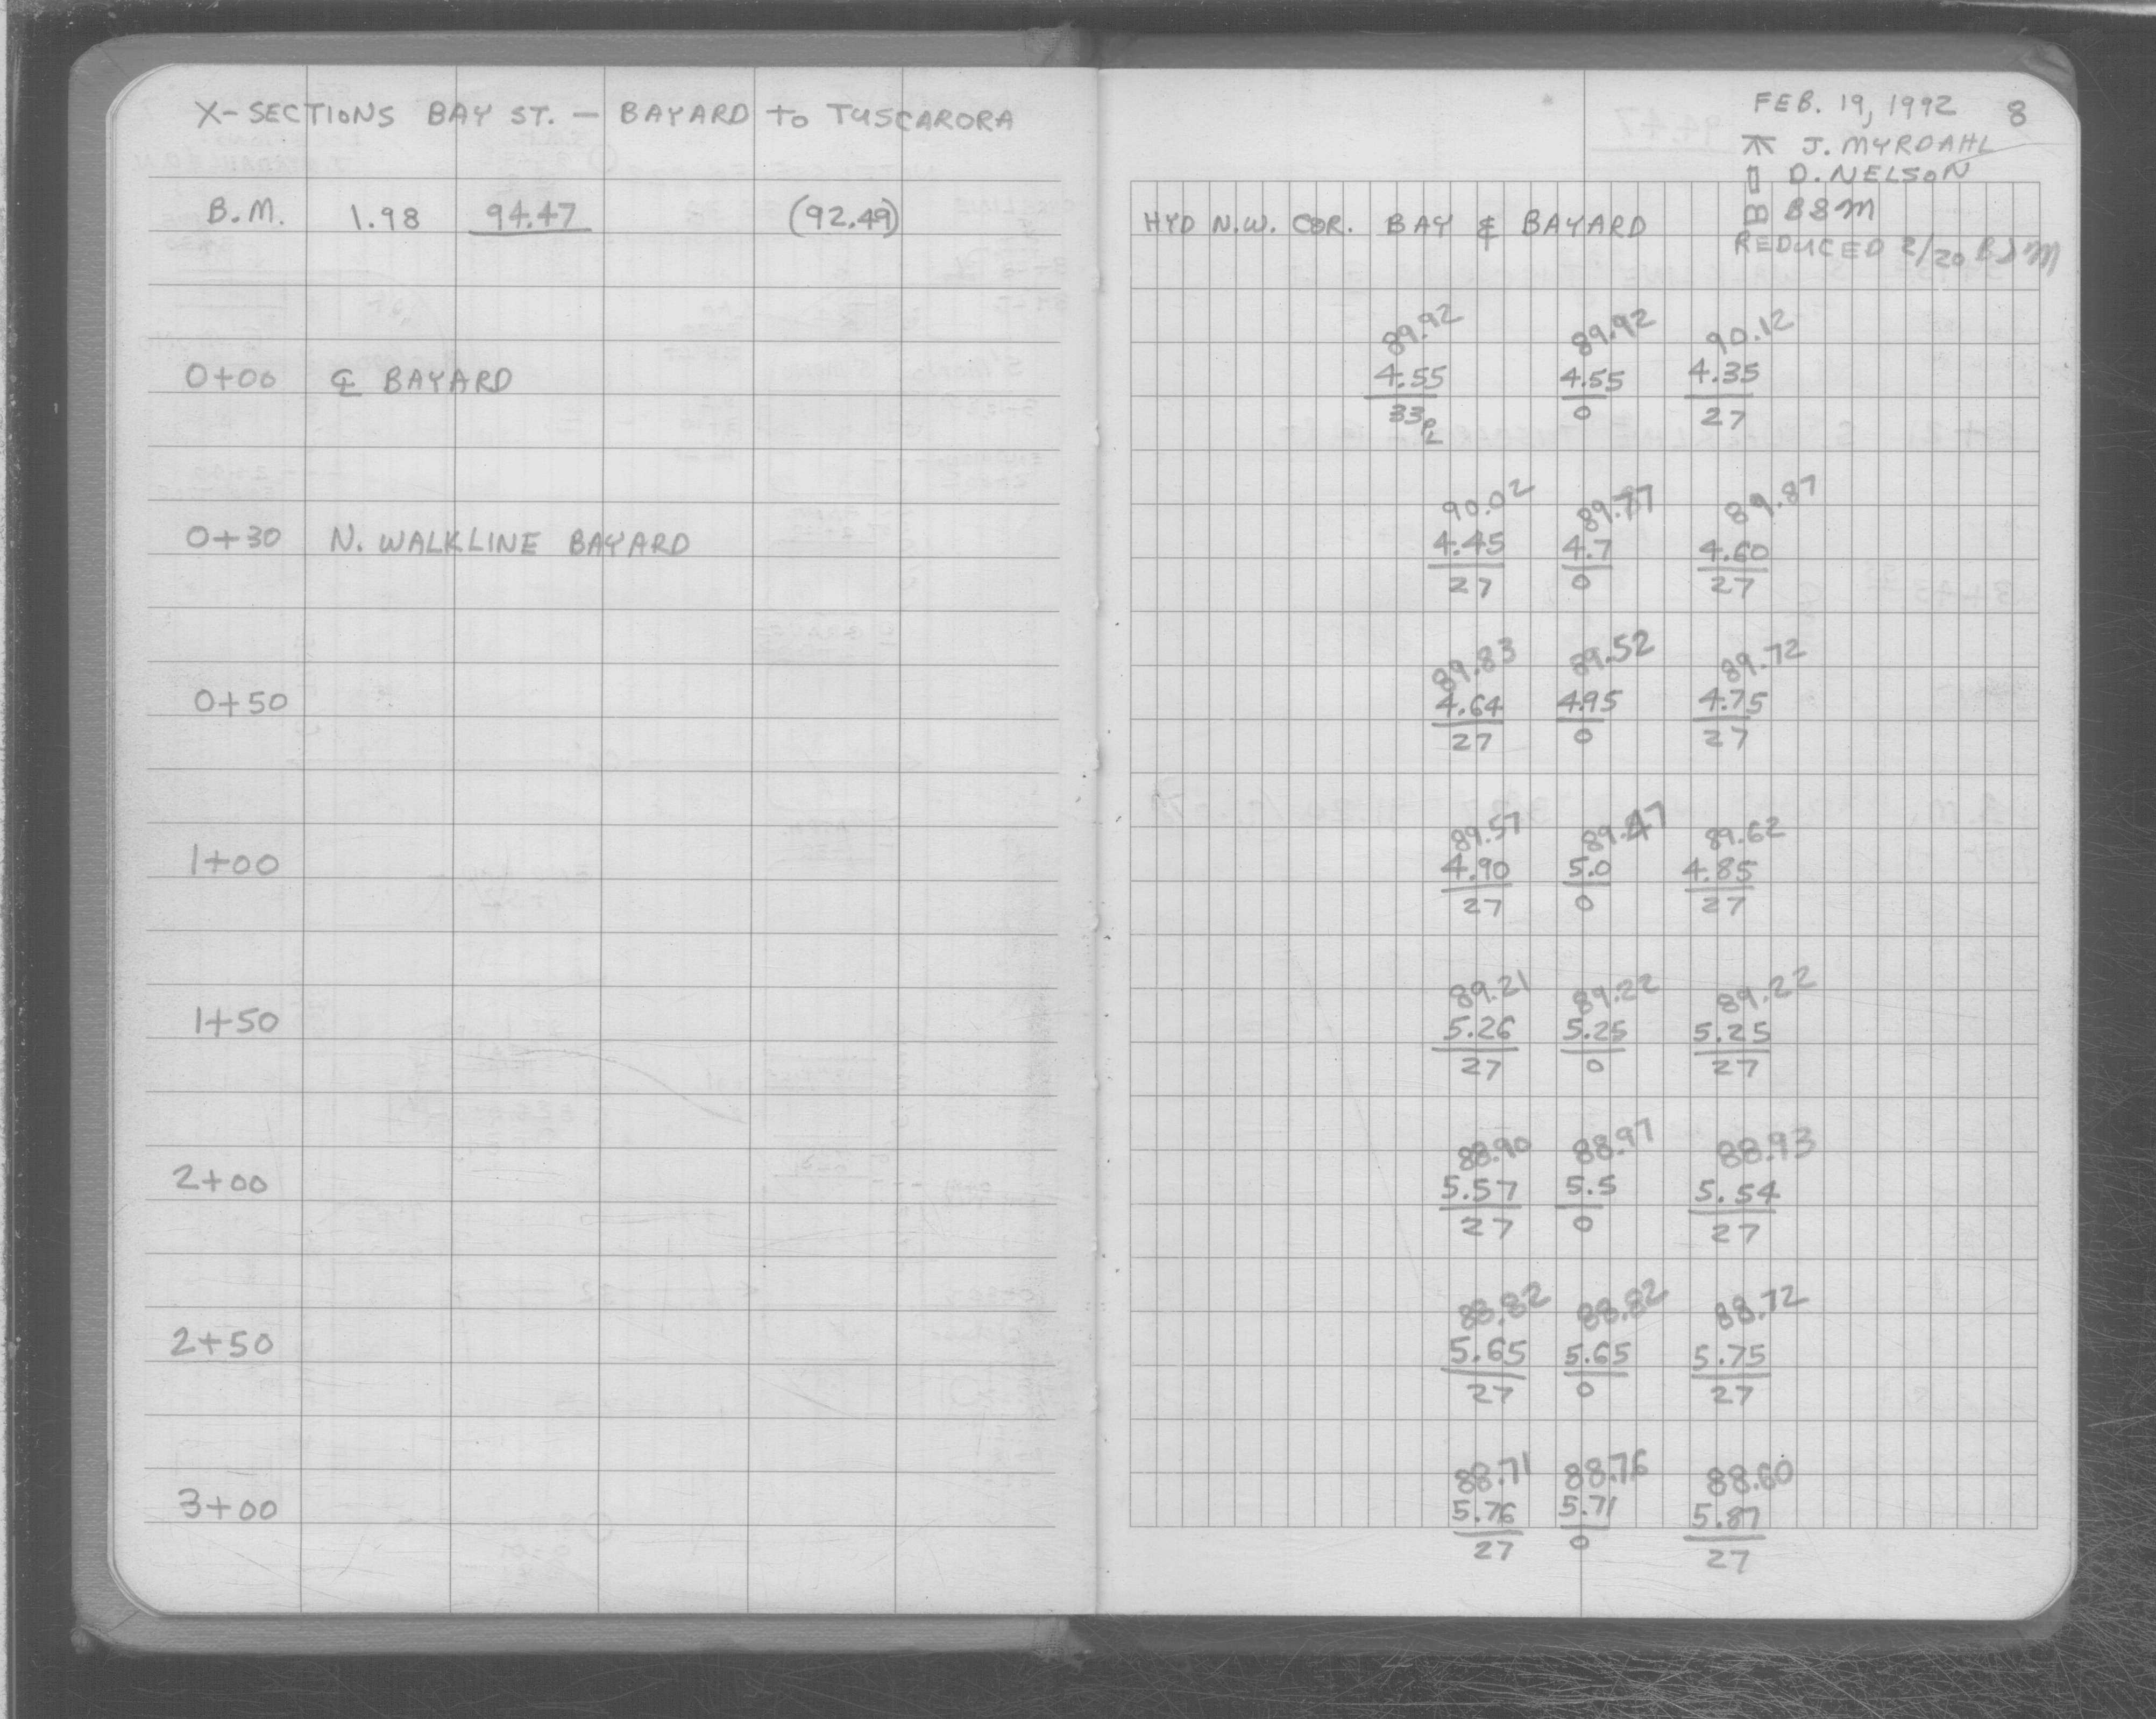 X-SECTIONS BAY ST. — BAYARD to TUSCARORA
B.M. 1.98 94.47 (92.49)
0+00 ℄ BAYARD
0+30 N. WALKLINE BAYARD
0+50
1+00
1+50
2+00
2+50
3+00
FEB. 19, 1992 8
J. MYRDAHL
D. NELSON
HYD N.W. COR. BAY & BAYARD
REDUCED 2/20 BJM
89.92 89.92 90.12
4.55 4.55 4.35
33 PL 0 27
90.02 89.77 89.87
4.45 4.7 4.60
27 0 27
89.83 89.52 89.72
4.64 4.95 4.75
27 0 27
89.57 89.47 89.62
4.90 5.0 4.85
27 0 27
89.21 89.22 89.22
5.26 5.25 5.25
27 0 27
88.90 88.97 88.93
5.57 5.5 5.54
27 0 27
88.82 88.82 88.72
5.65 5.65 5.75
27 0 27
88.71 88.76 88.60
5.76 5.71 5.87
27 0 27